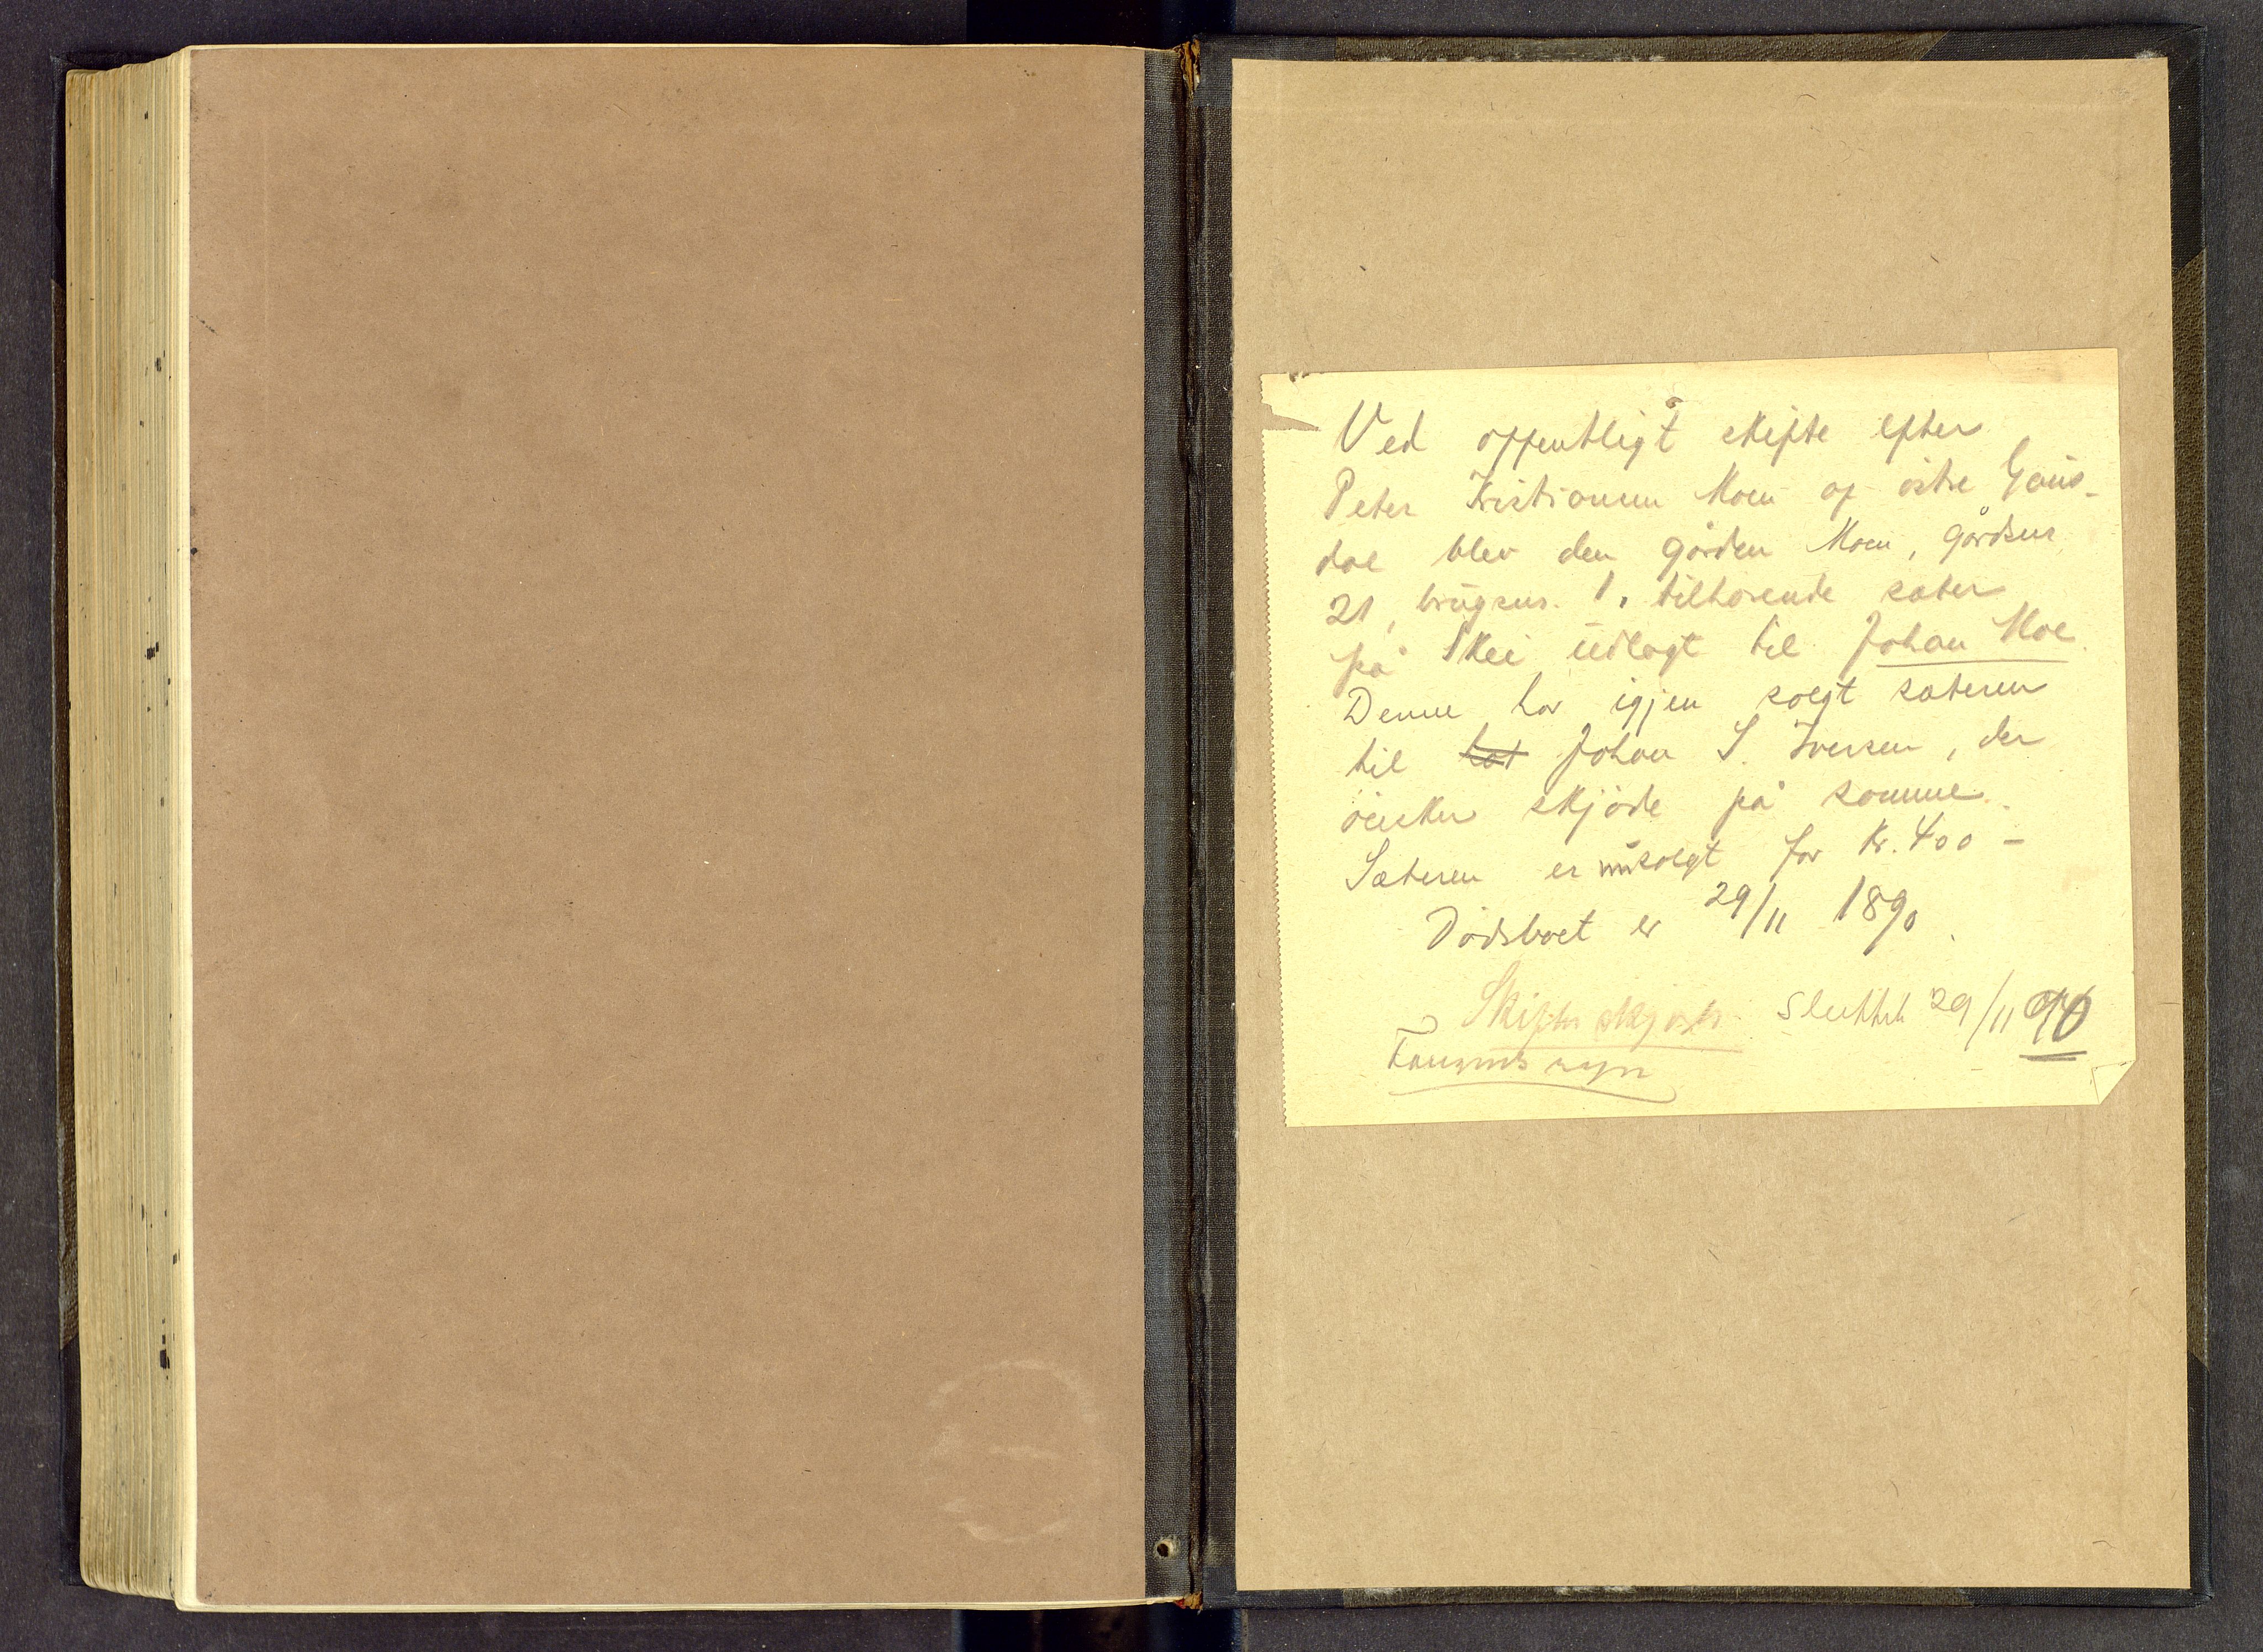 Ved offentligt skifte efter
Peter Kristiansen Moen af östre Gaus-
dal blev den gården Moen, gårdsnr
21, brugsnr. 1. tilhørende sæter
på Skei udlagt til Johan Moe.
Denne har igjen solgt sæteren
til hat Johan S. Iversen, der
önsker skjöde på samme.
Sæteren er nu solgt for Kr. 400 -
Dödsboet er 29/11 1890.
Skifteskjöde Sluttet 29/11 90